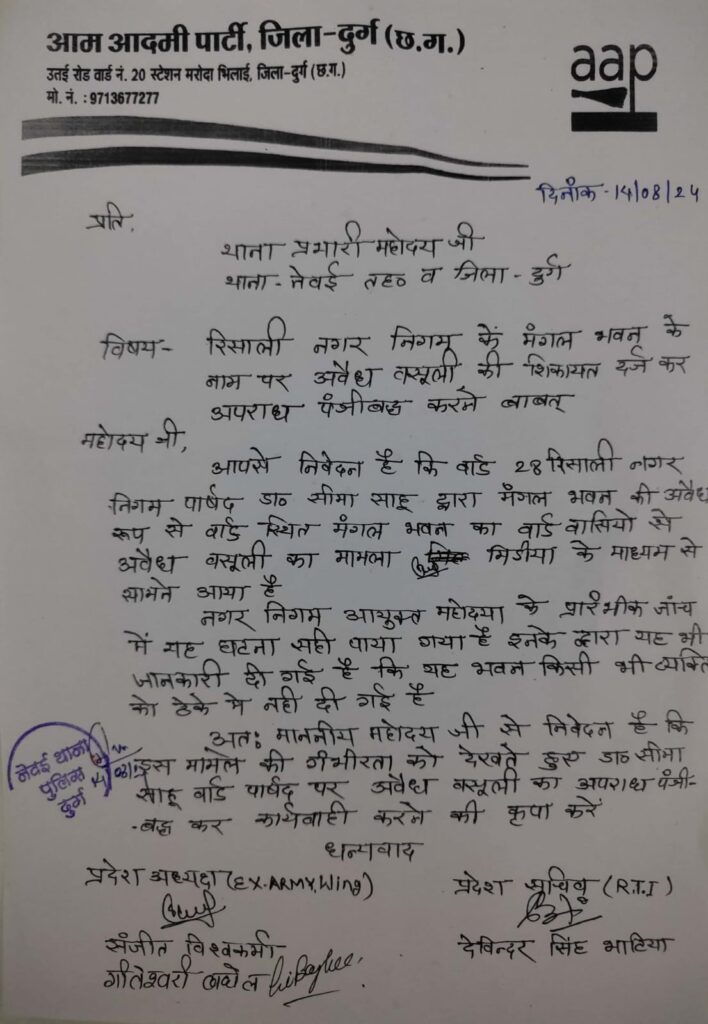 आम आदमी पार्टी, जिला-दुर्ग (छ.ग.)
उतई रोड वार्ड नं. 20 स्टेशन मरोदा भिलाई, जिला-दुर्ग (छ.ग.)
मो. नं. : 9713677277
aap
दिनांक - 14/08/24
प्रति,
थाना प्रभारी महोदय जी
थाना - नेवई तह० व जिला - दुर्ग
विषय- रिसाली नगर निगम के मंगल भवन के
नाम पर अवैध वसूली की शिकायत दर्ज कर
अपराध पंजीबद्ध करने बाबत्
महोदय जी,
आपसे निवेदन है कि वार्ड 28 रिसाली नगर
निगम पार्षद डा० सीमा साहू द्वारा मंगल भवन की अवैध
रूप से वार्ड स्थित मंगल भवन का वार्ड वासियो से
अवैध वसूली का मामला मिडीया के माध्यम से
सामने आया है
नगर निगम आयुक्त महोदया के प्रारंभीक जांच
में यह घटना सही पाया गया है इनके द्वारा यह भी
जानकारी दी गई है कि यह भवन किसी भी व्यक्ति
को ठेके मे नही दी गई है
अतः माननीय महोदय जी से निवेदन है कि
इस मामेल की गंभीरता को देखते हुए डा० सीमा
साहू वार्ड पार्षद पर अवैध वसूली का अपराध पंजी-
-बद्ध कर कार्यवाही करने की कृपा करें
धन्यवाद
नेवई थाना
पुलिस
दुर्ग
प्रदेश अध्यक्ष (EX-ARMY, Wing)
प्रदेश सचिव (R.T.I)
संजीत विश्वकर्मा
देविन्दर सिंह भाटिया
गीतेश्वरी बघेल